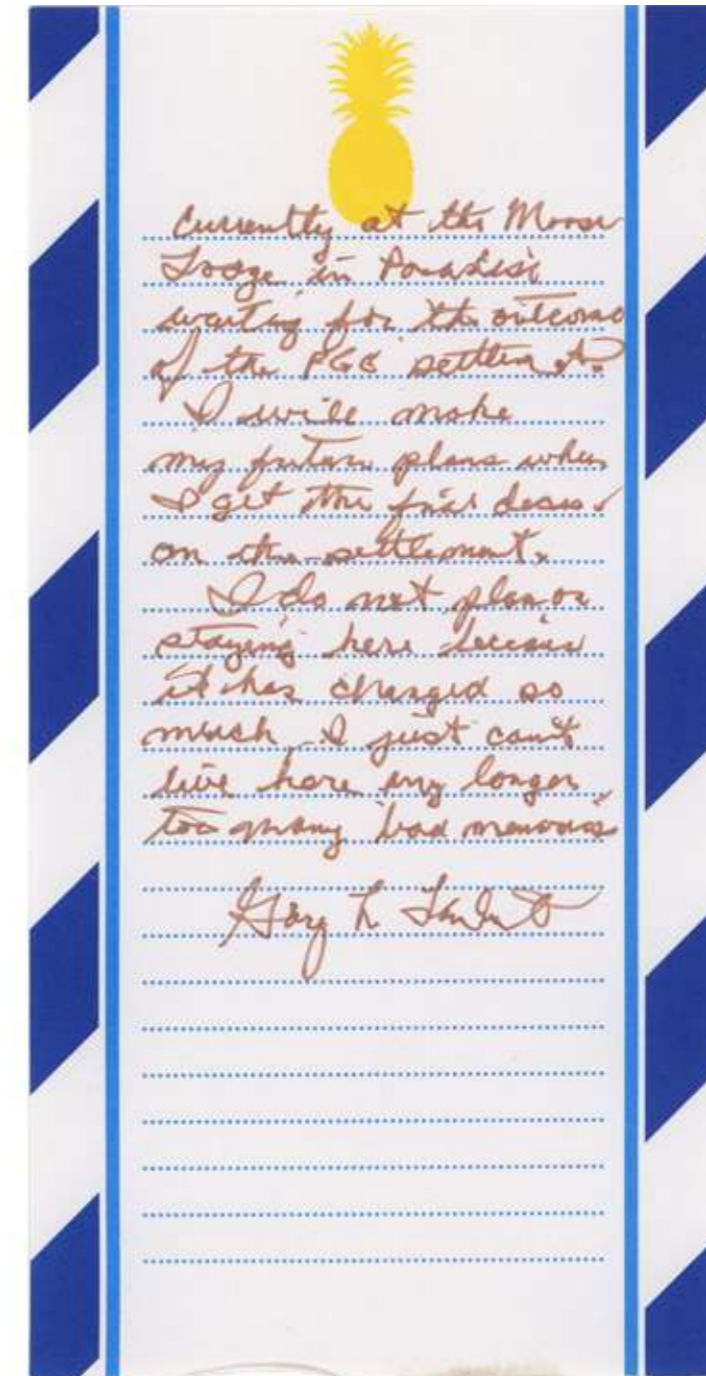 Currently at the Moose
Lodge in Paradise
waiting for the outcome
of the PGE settlement.
I will make
my future plans when
I get the final
on the settlement.
I do not plan on
staying here because
it has changed so
much, I just can't
live here any longer
too many bad memories
Gary L